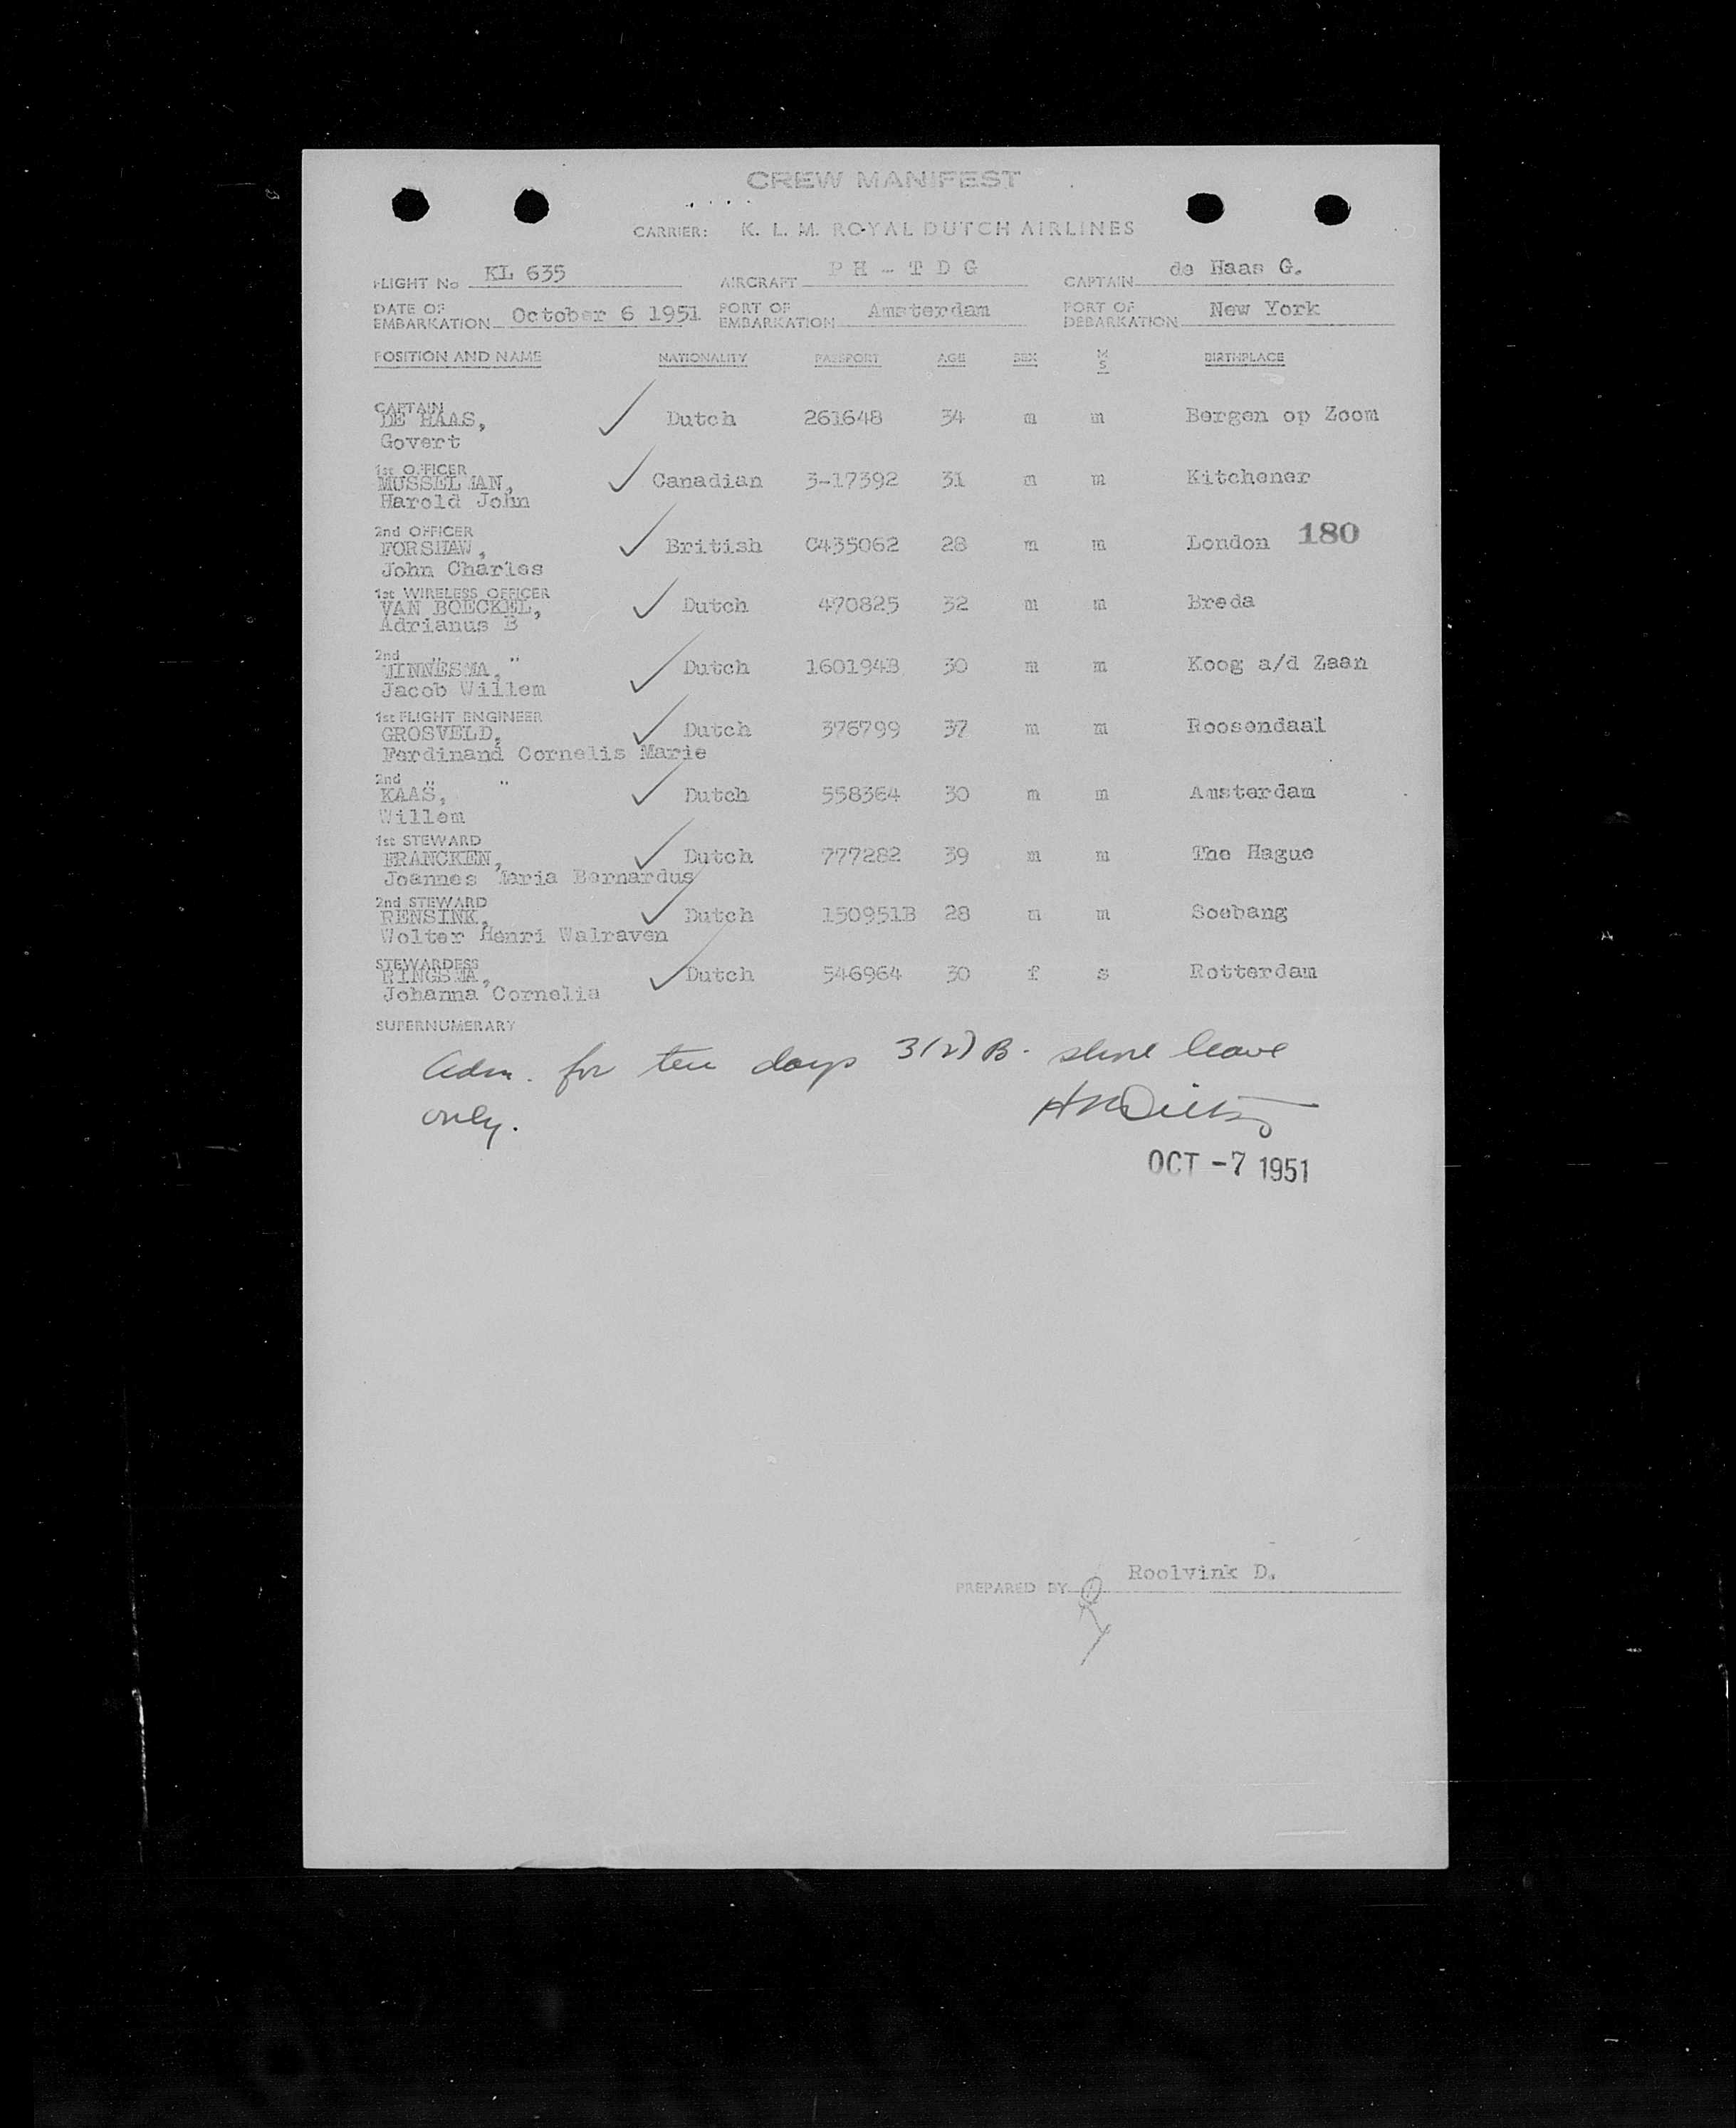 CREW MANIFEST
CARRIER: K. L. M. ROYAL DUTCH AIRLINES
FLIGHT No KL 635 AIRCRAFT P H - T D G CAPTAIN de Haas G.
DATE OF EMBARKATION October 6 1951 PORT OF EMBARKATION Amsterdam PORT OF DEBARKATION New York
POSITION AND NAME NATIONALITY PASSPORT AGE SEX M S BIRTHPLACE
CAPTAIN
DE HAAS, Dutch 261648 34 m m Bergen op Zoom
Govert
1st OFFICER
MUSSELMAN, Canadian 3-17392 31 m m Kitchener
Harold John
2nd OFFICER
FORSHAW, British C435062 28 m m London 180
John Charles
1st WIRELESS OFFICER
VAN BOECKEL, Dutch 470825 32 m m Breda
Adrianus B
2nd " "
MINNESMA, Dutch 160194B 30 m m Koog a/d Zaan
Jacob Willem
1st FLIGHT ENGINEER
GROSVELD, Dutch 376799 37 m m Roosendaal
Ferdinand Cornelis Marie
2nd " "
KAAS, Dutch 558364 30 m m Amsterdam
Willem
1st STEWARD
FRANCKEN, Dutch 777282 39 m m The Hague
Joannes Maria Bernardus
2nd STEWARD
RENSINK, Dutch 150951B 28 m m Soebang
Wolter Henri Walraven
STEWARDESS
RINGSMA, Dutch 546964 30 f s Rotterdam
Johanna Cornelia
SUPERNUMERARY
Adm. for ten days 3(2)B. shore leave
only.
OCT -7 1951
PREPARED BY Roolvink D.